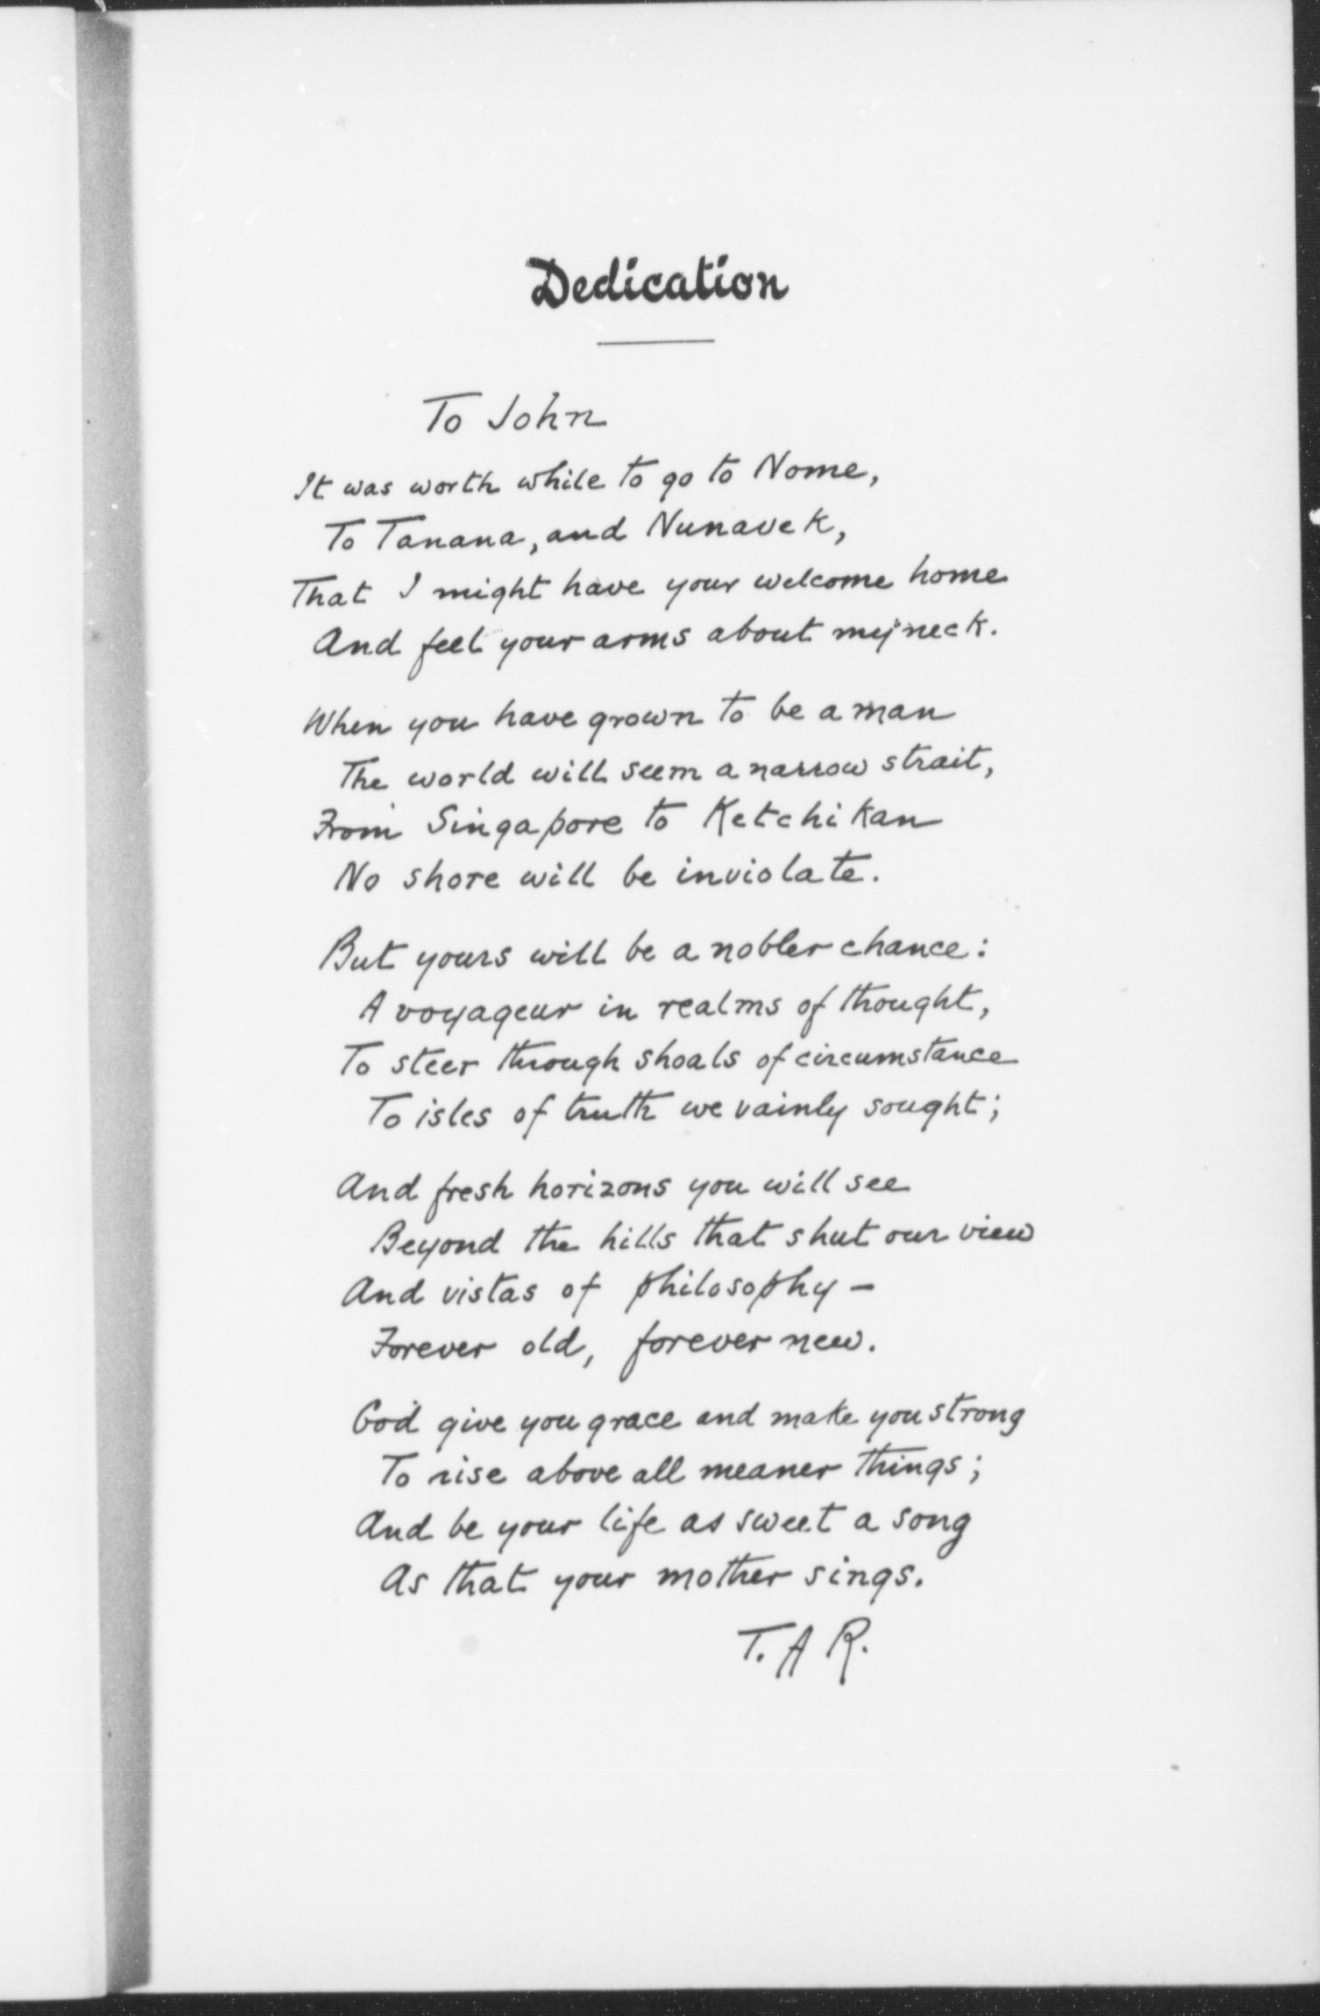 Dedication
To John
It was worth while to go to Nome,
To Tanana, and Nunavek,
That I might have your welcome home
And feel your arms about my neck.
When you have grown to be a man
The world will seem a narrow strait,
From Singapore to Ketchikan
No shore will be inviolate.
But yours will be a nobler chance:
A voyageur in realms of thought,
To steer through shoals of circumstance
To isles of truth we vainly sought;
And fresh horizons you will see
Beyond the hills that shut our view
And vistas of philosophy –
Forever old, forever new.
God give you grace and make you strong
To rise above all meaner things;
And be your life as sweet a song
As that your mother sings.
T. A R.